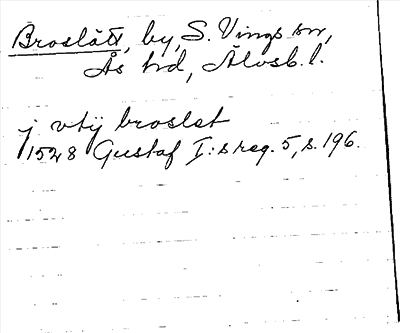 Broslätt, by, S. Vings sn,
Ås hd, Älvsb. l.
j vtij broslet
1528 Gustaf I:s reg. 5, s. 196.